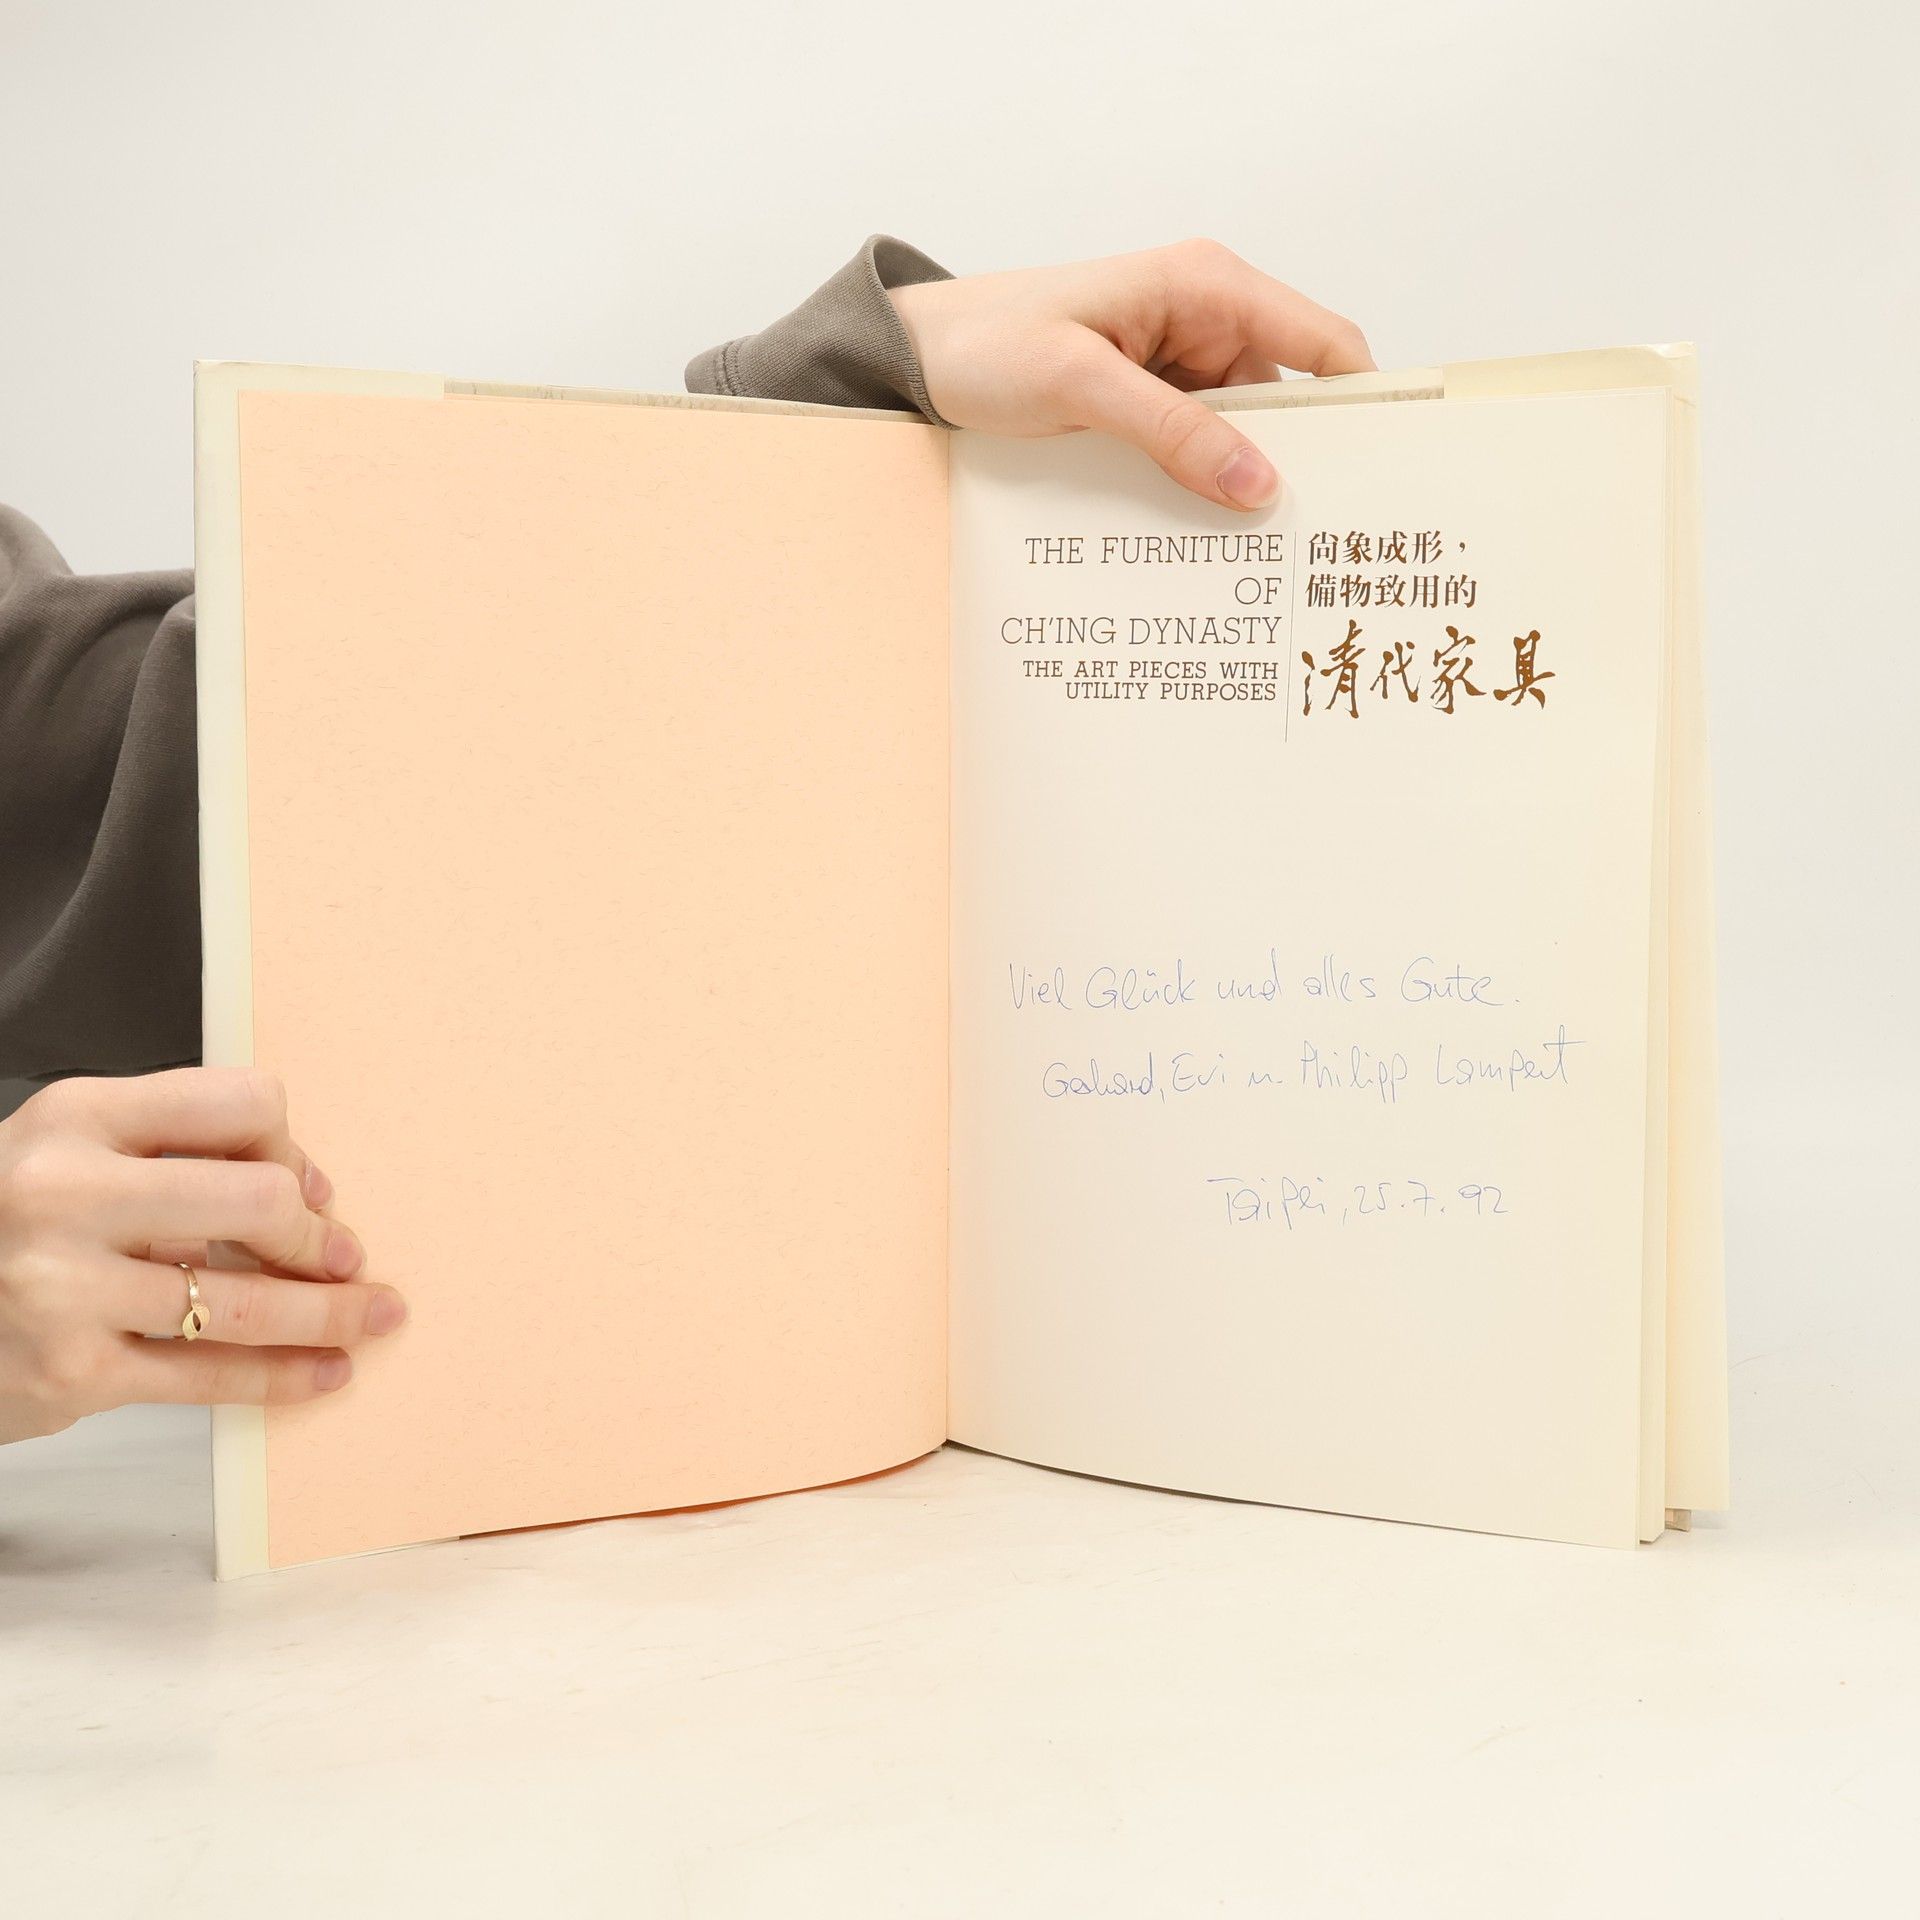 THE FURNITURE
OF
CH'ING DYNASTY
THE ART PIECES WITH
UTILITY PURPOSES
尙象成形，
備物致用的
清代家具
Viel Glück und alles Gute.
Gerhard, Evi u. Philipp Lampert
Taipei, 25.7.92